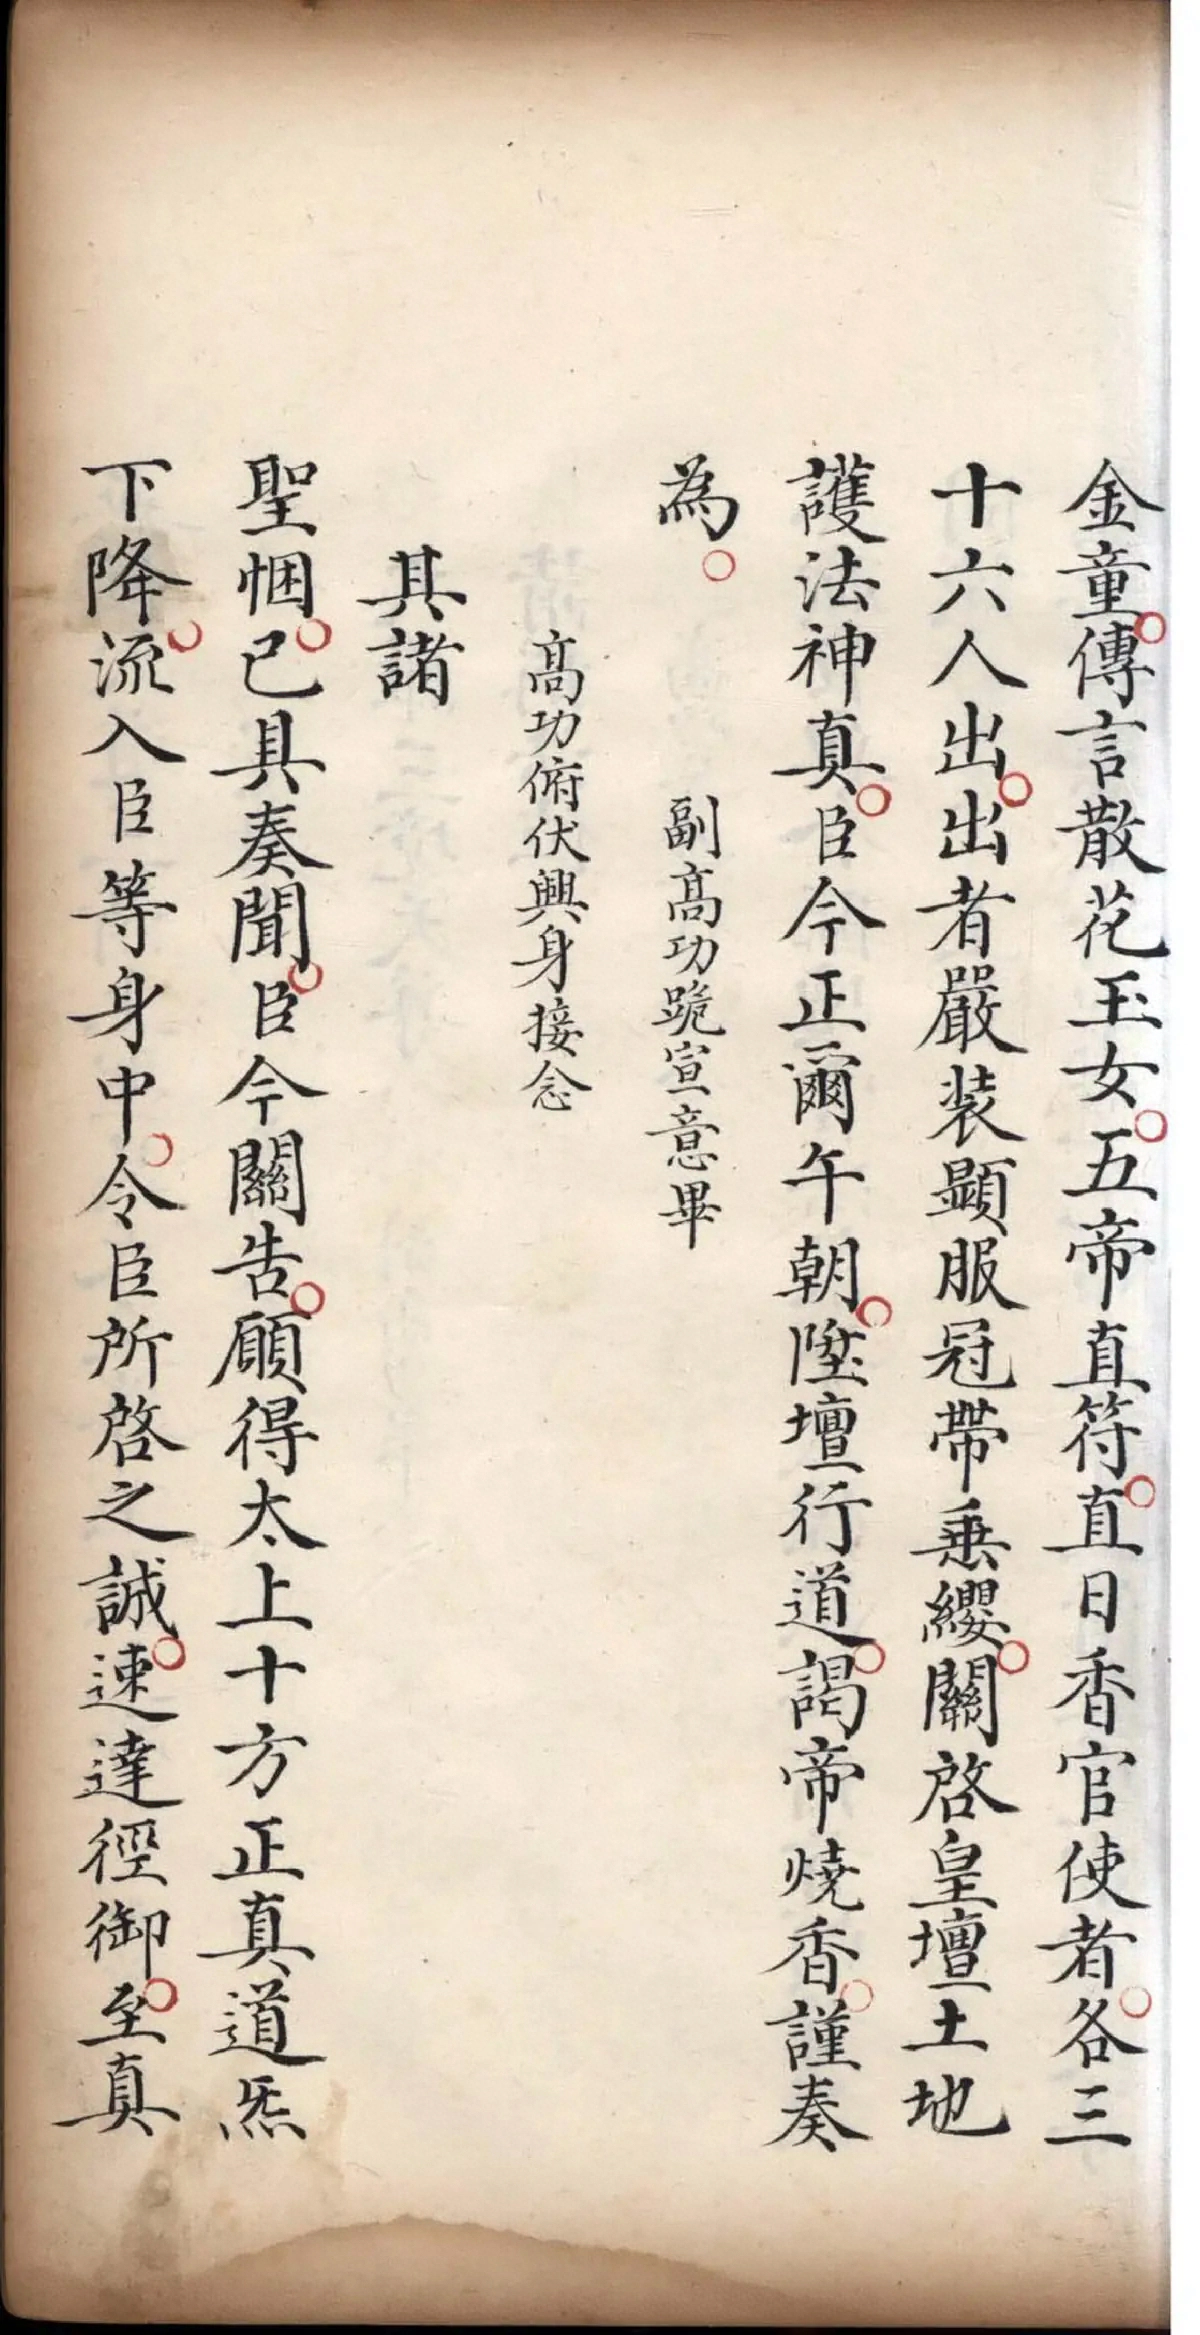 金童傳言散花玉女五帝直符直日香官使者各三
十六人出出者嚴裝顯服冠帶垂纓關啓皇壇土地
護法神真臣今正爾午朝陞壇行道謁帝燒香謹奏
為　副高功跪宣意畢
高功俯伏興身接念
其諸
聖悃已具奏聞臣今關告願得太上十方正真道炁
下降流入臣等身中令臣所啓之誠速達徑御至真